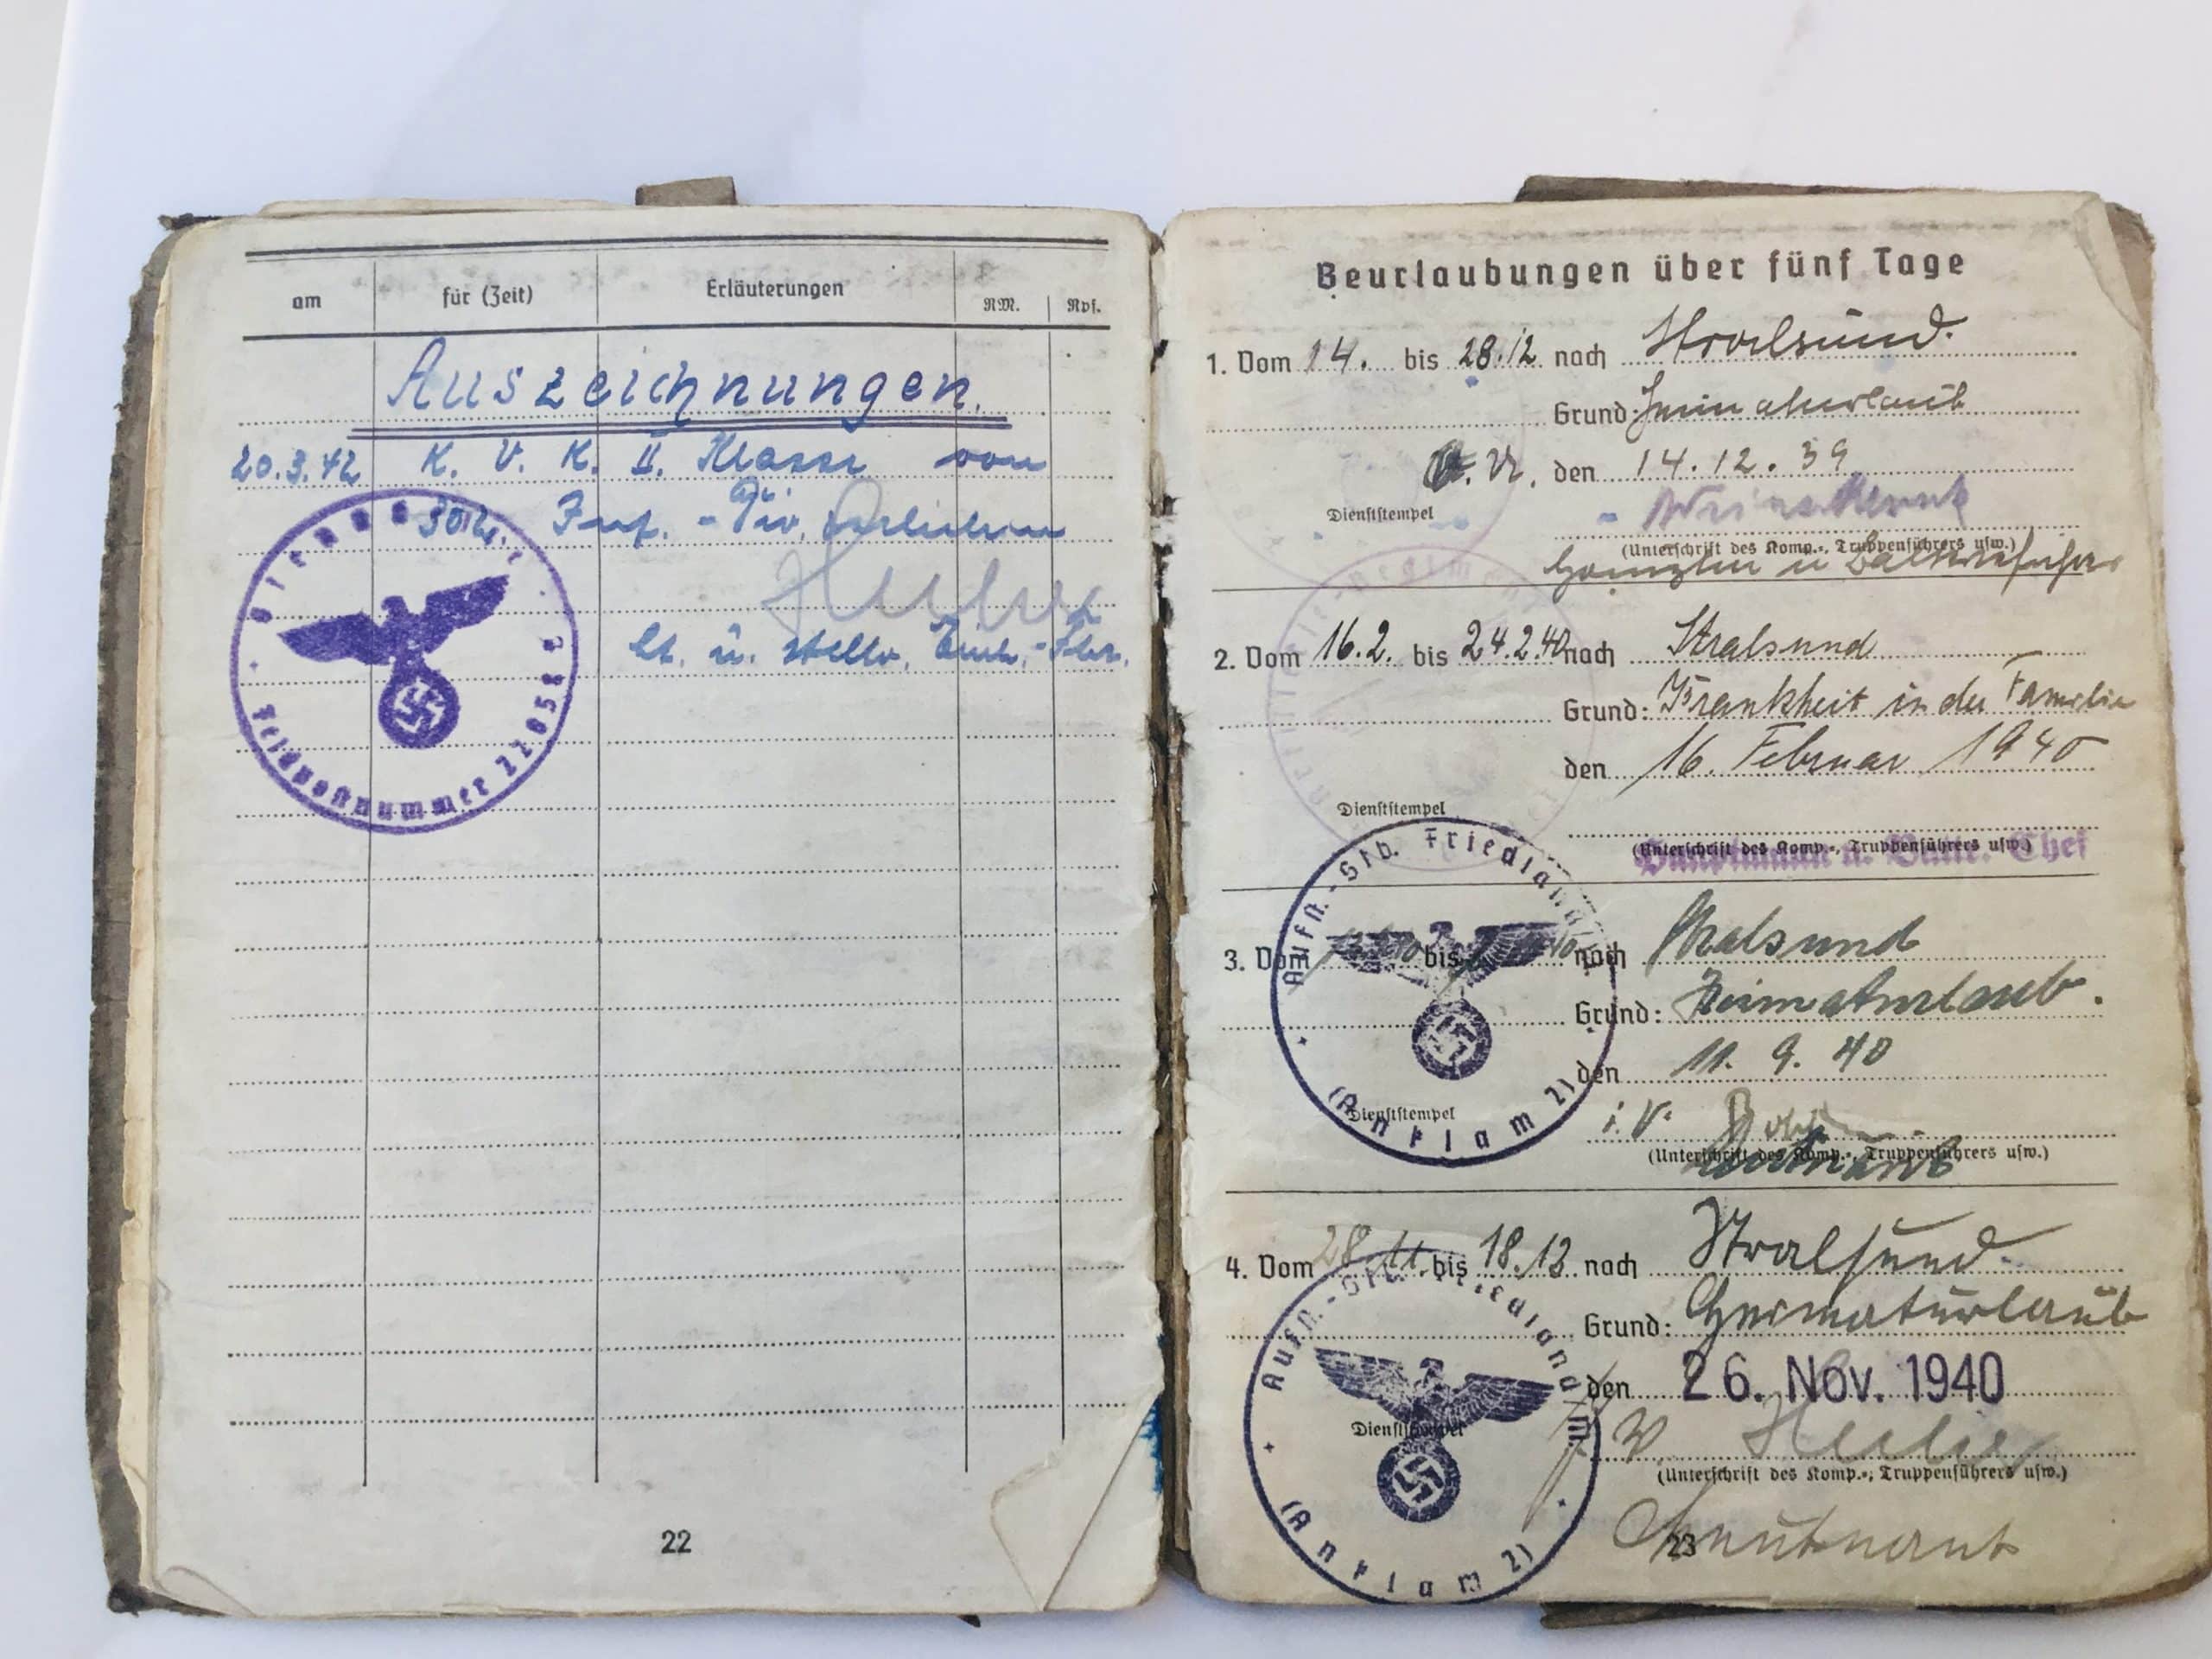 am für (Zeit) Erläuterungen RM. Rpf.
Auszeichnungen.
20.3.42 K. V. K. II. Klasse von
Inf. - Div. verliehen
Lt. u. stellv.
Dienststelle
Feldpostnummer
22
Beurlaubungen über fünf Tage
1. Vom 14. bis 28.12. nach Stralsund.
Grund: Heimaturlaub
O. U., den 14.12.39
Dienststempel
(Unterschrift des Komp.-, Truppenführers usw.)
Hauptm. u. Batterieführer
2. Vom 16.2. bis 24.2.40 nach Stralsund
Grund: Krankheit in der Familie
den 16. Februar 1940
Dienststempel
(Unterschrift des Komp.-, Truppenführers usw.)
Hauptmann u. Battr. Chef
Aufst.-Stb. Friedland
3. Vom bis nach Stralsund
Grund: Heimaturlaub.
den 11. 9. 40
(Anklam 2)
Dienststempel i. V.
(Unterschrift des Komp.-, Truppenführers usw.)
Leutnant
4. Vom 28.11. bis 18.12. nach Stralsund.
Grund: Heimaturlaub
den 26. Nov. 1940
Dienststempel
(Unterschrift des Komp.-, Truppenführers usw.)
(Anklam 2)
Leutnant
23